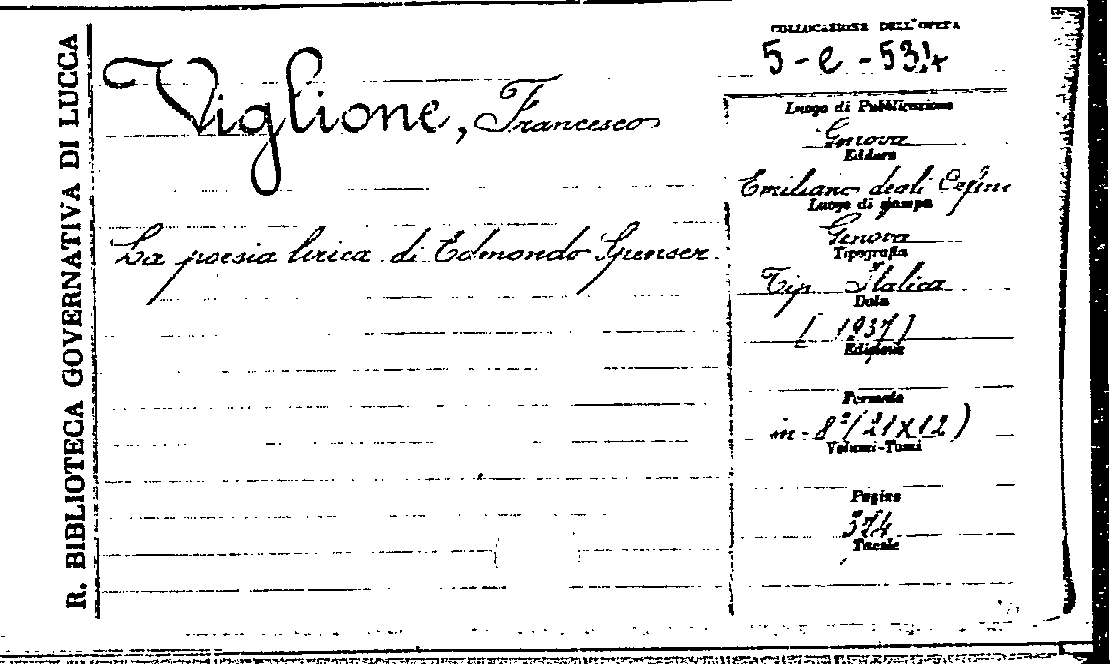 R. BIBLIOTECA GOVERNATIVA DI LUCCA
Viglione, Francesco
La poesia lirica di Edmondo Spenser
COLLOCAZIONE DELL'OPERA
5-e-534
Luogo di Pubblicazione
Genova
Editore
Emiliano degli Orfini
Luogo di stampa
Genova
Tipografia
Tip. Italica
Data
[1937]
Edizione
Formato
in-8°(21x12)
Volumi-Tomi
Pagine
374
Tavole